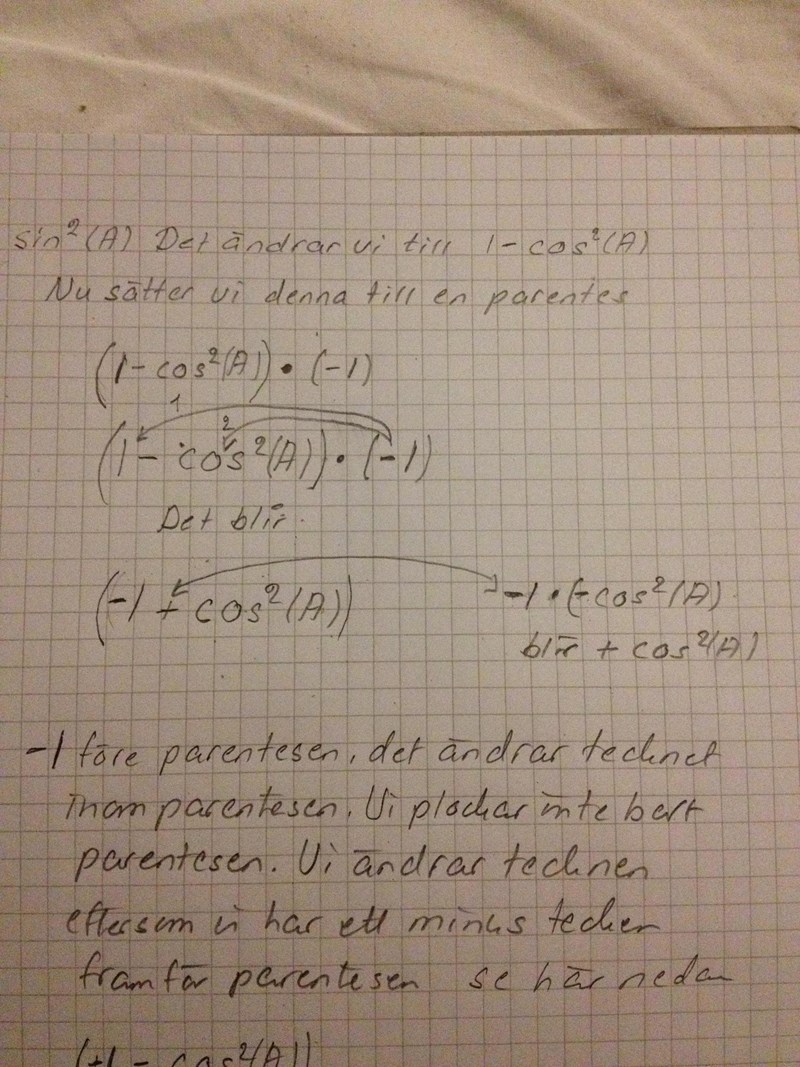 sin²(A) Det ändrar vi till 1 - cos²(A)
Nu sätter vi denna till en parentes
(1 - cos²(A)) • (-1)
1 2
(1 - cos²(A)) • (-1)
Det blir
(-1 + cos²(A)) -1 • (-cos²(A)
blir + cos²(A)
-1 före parentesen, det ändrar technet
inom parentesen. Vi plockar inte bort
parentesen. Vi ändrar technen
eftersom vi har ett minus techen
framför parentesen se här nedan
(+1 - cos²(A))